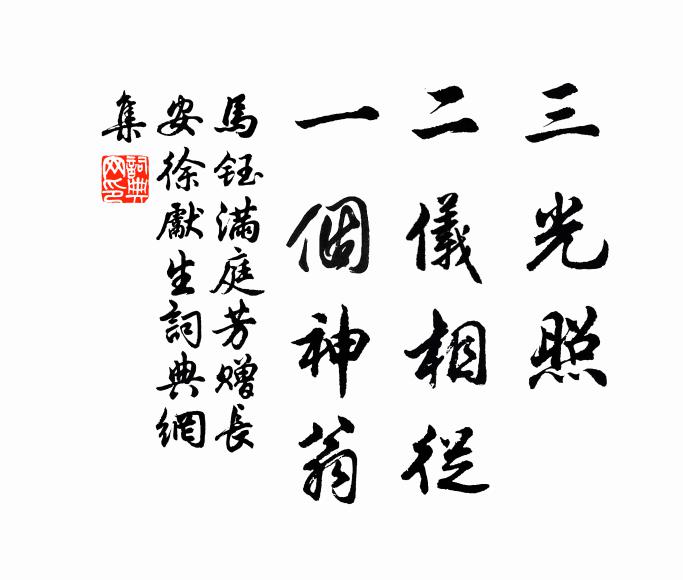 三光照
二儀相從
一個神翁
馬鈺滿庭芳贈長
安徐獻生詞典網
集
詞典網印